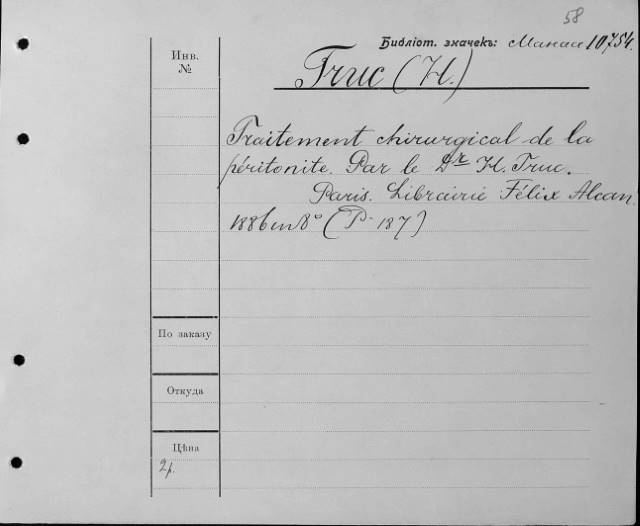 58
Библіот. значекъ: Манас 10754.
Инв.
№
Truc (H.)
Traitement chirurgical de la
péritonite. Par le Dr H. Truc.
Paris. Librairie Félix Alcan.
1886 in 8° (P- 187)
По заказу
Откуда
Цѣна
2р.